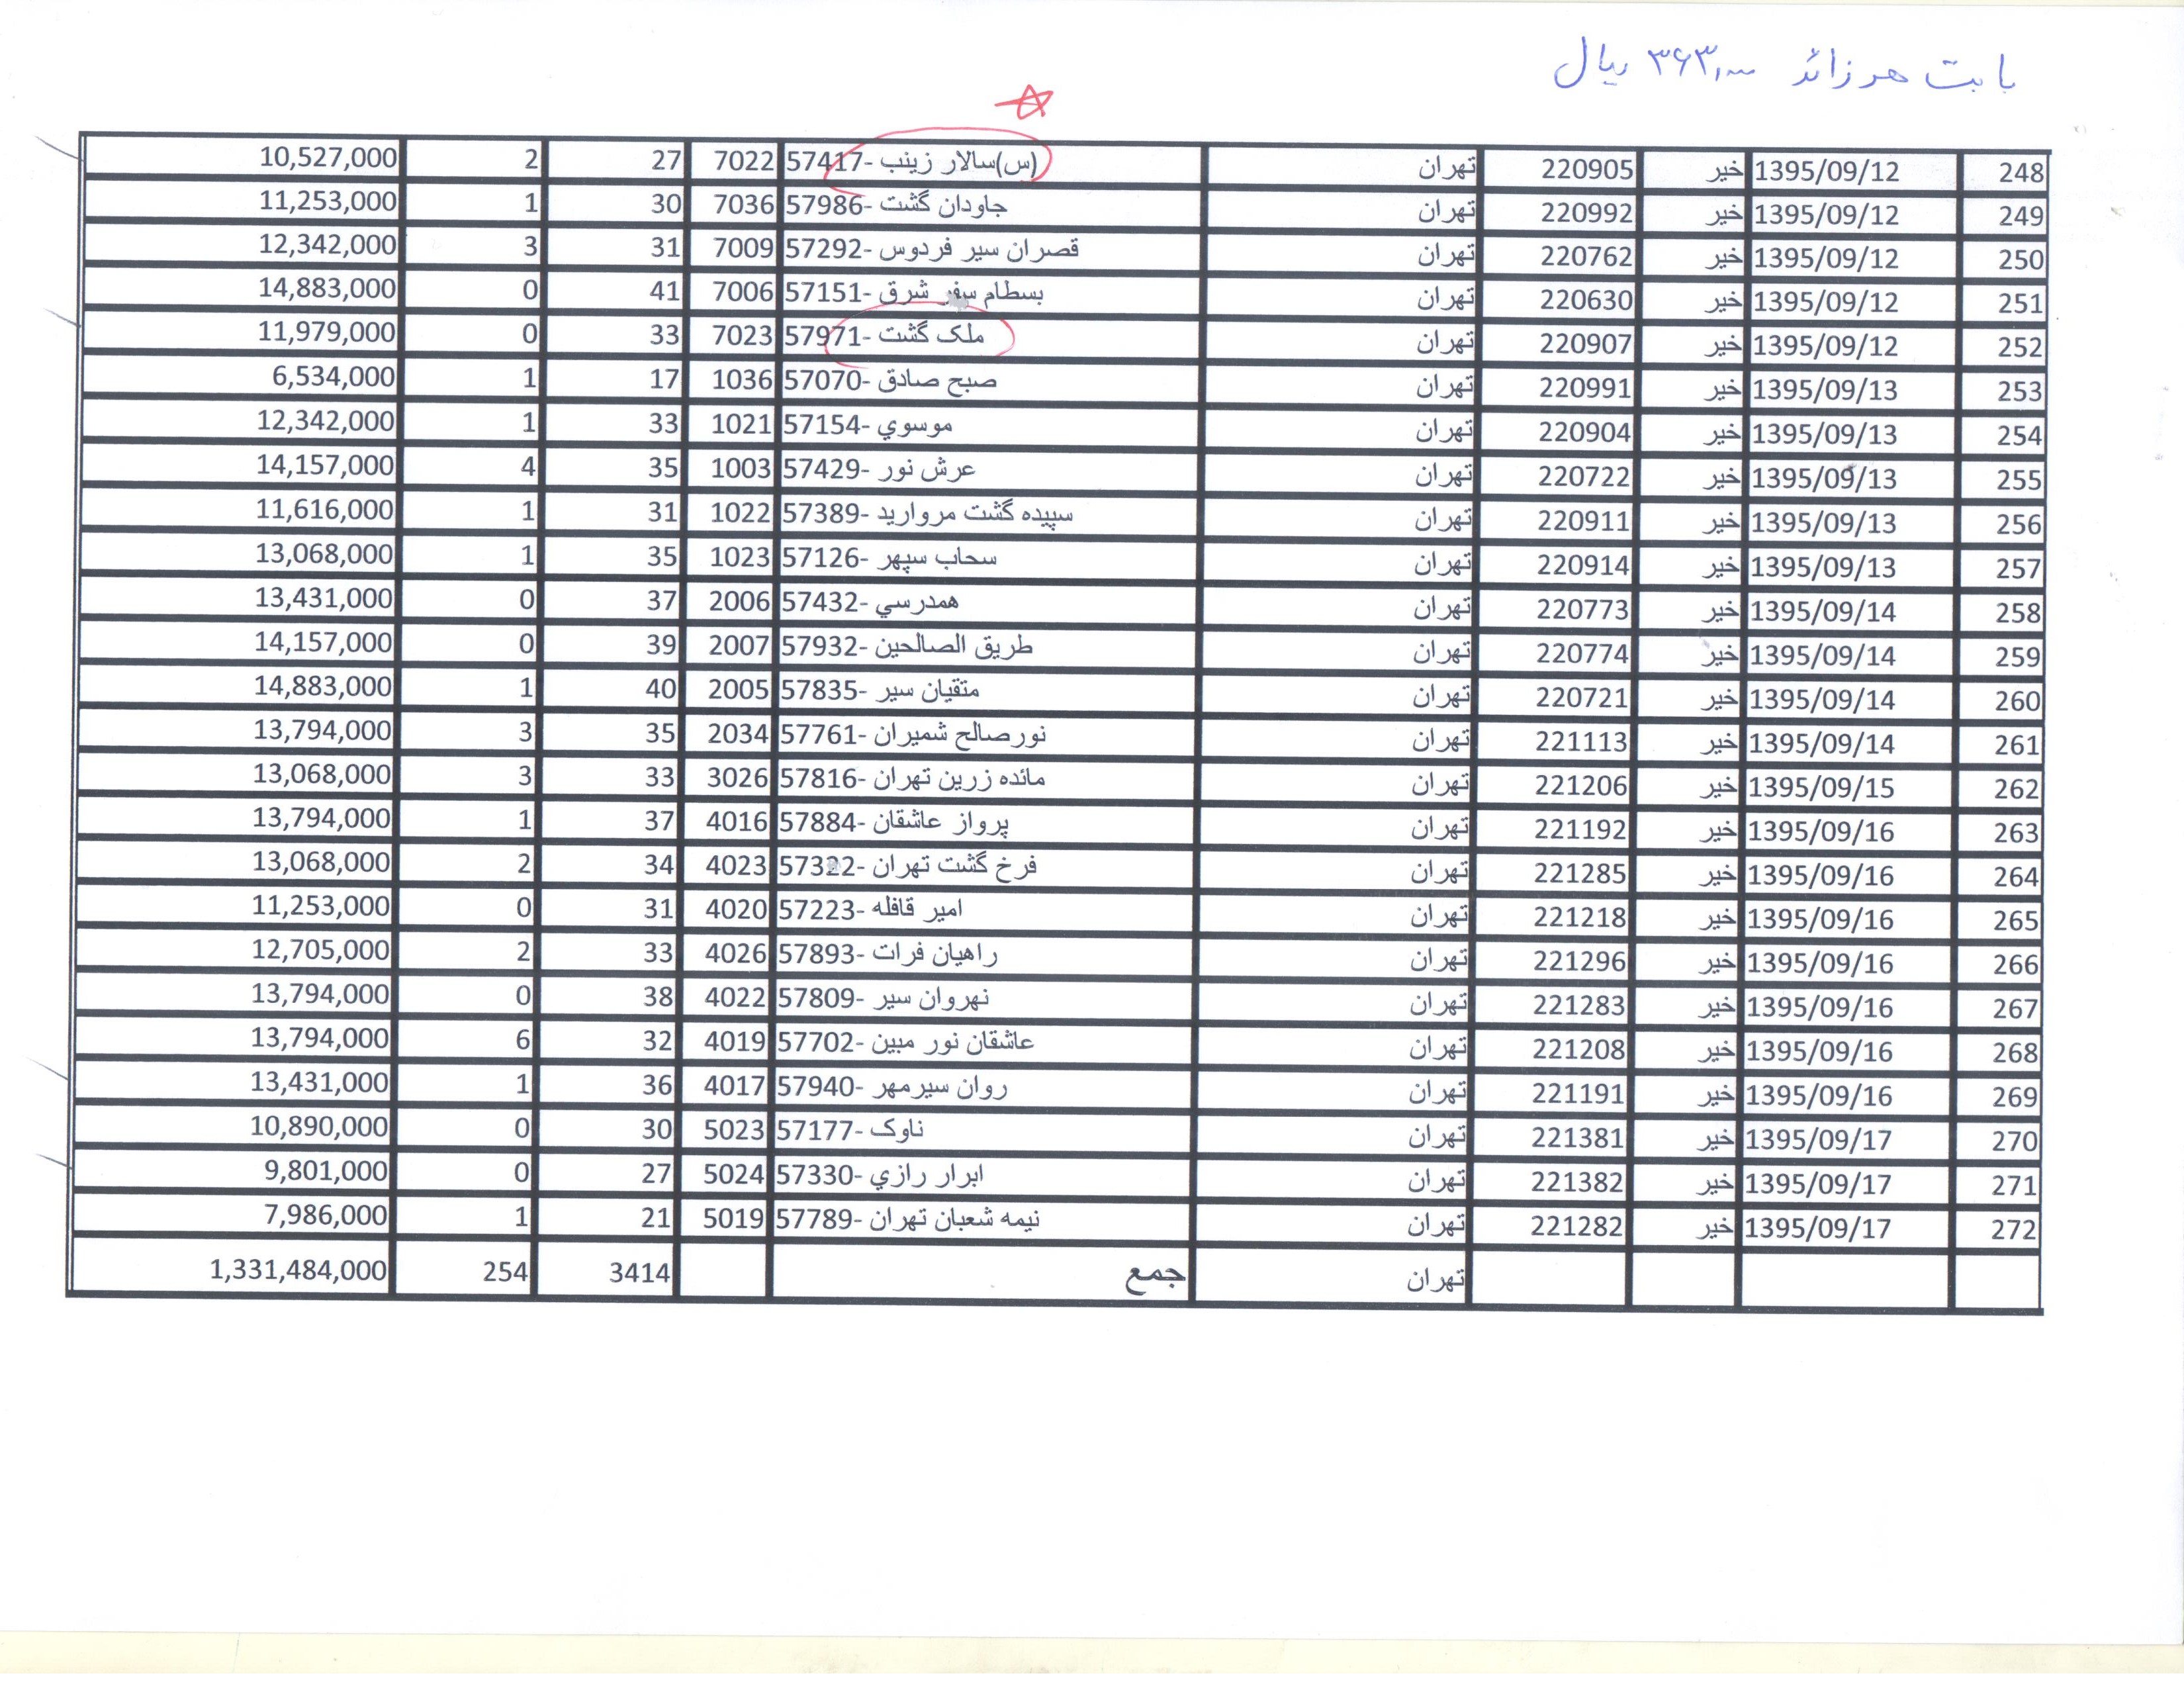 بابت هر زائر ۳۶۳,۰۰۰ ریال
248 1395/09/12 خیر 220905 تهران 57417- سالار زینب(س) 7022 27 2 10,527,000
249 1395/09/12 خیر 220992 تهران 57986- جاودان گشت 7036 30 1 11,253,000
250 1395/09/12 خیر 220762 تهران 57292- قصران سیر فردوس 7009 31 3 12,342,000
251 1395/09/12 خیر 220630 تهران 57151- بسطام سفر شرق 7006 41 0 14,883,000
252 1395/09/12 خیر 220907 تهران 57971- ملک گشت 7023 33 0 11,979,000
253 1395/09/13 خیر 220991 تهران 57070- صبح صادق 1036 17 1 6,534,000
254 1395/09/13 خیر 220904 تهران 57154- موسوي 1021 33 1 12,342,000
255 1395/09/13 خیر 220722 تهران 57429- عرش نور 1003 35 4 14,157,000
256 1395/09/13 خیر 220911 تهران 57389- سپیده گشت مروارید 1022 31 1 11,616,000
257 1395/09/13 خیر 220914 تهران 57126- سحاب سپهر 1023 35 1 13,068,000
258 1395/09/14 خیر 220773 تهران 57432- همدرسي 2006 37 0 13,431,000
259 1395/09/14 خیر 220774 تهران 57932- طریق الصالحین 2007 39 0 14,157,000
260 1395/09/14 خیر 220721 تهران 57835- متقیان سیر 2005 40 1 14,883,000
261 1395/09/14 خیر 221113 تهران 57761- نورصالح شمیران 2034 35 3 13,794,000
262 1395/09/15 خیر 221206 تهران 57816- مائده زرین تهران 3026 33 3 13,068,000
263 1395/09/16 خیر 221192 تهران 57884- پرواز عاشقان 4016 37 1 13,794,000
264 1395/09/16 خیر 221285 تهران 57322- فرخ گشت تهران 4023 34 2 13,068,000
265 1395/09/16 خیر 221218 تهران 57223- امیر قافله 4020 31 0 11,253,000
266 1395/09/16 خیر 221296 تهران 57893- راهیان فرات 4026 33 2 12,705,000
267 1395/09/16 خیر 221283 تهران 57809- نهروان سیر 4022 38 0 13,794,000
268 1395/09/16 خیر 221208 تهران 57702- عاشقان نور مبین 4019 32 6 13,794,000
269 1395/09/16 خیر 221191 تهران 57940- روان سیرمهر 4017 36 1 13,431,000
270 1395/09/17 خیر 221381 تهران 57177- ناوک 5023 30 0 10,890,000
271 1395/09/17 خیر 221382 تهران 57330- ابرار رازي 5024 27 0 9,801,000
272 1395/09/17 خیر 221282 تهران 57789- نیمه شعبان تهران 5019 21 1 7,986,000
تهران جمع 3414 254 1,331,484,000